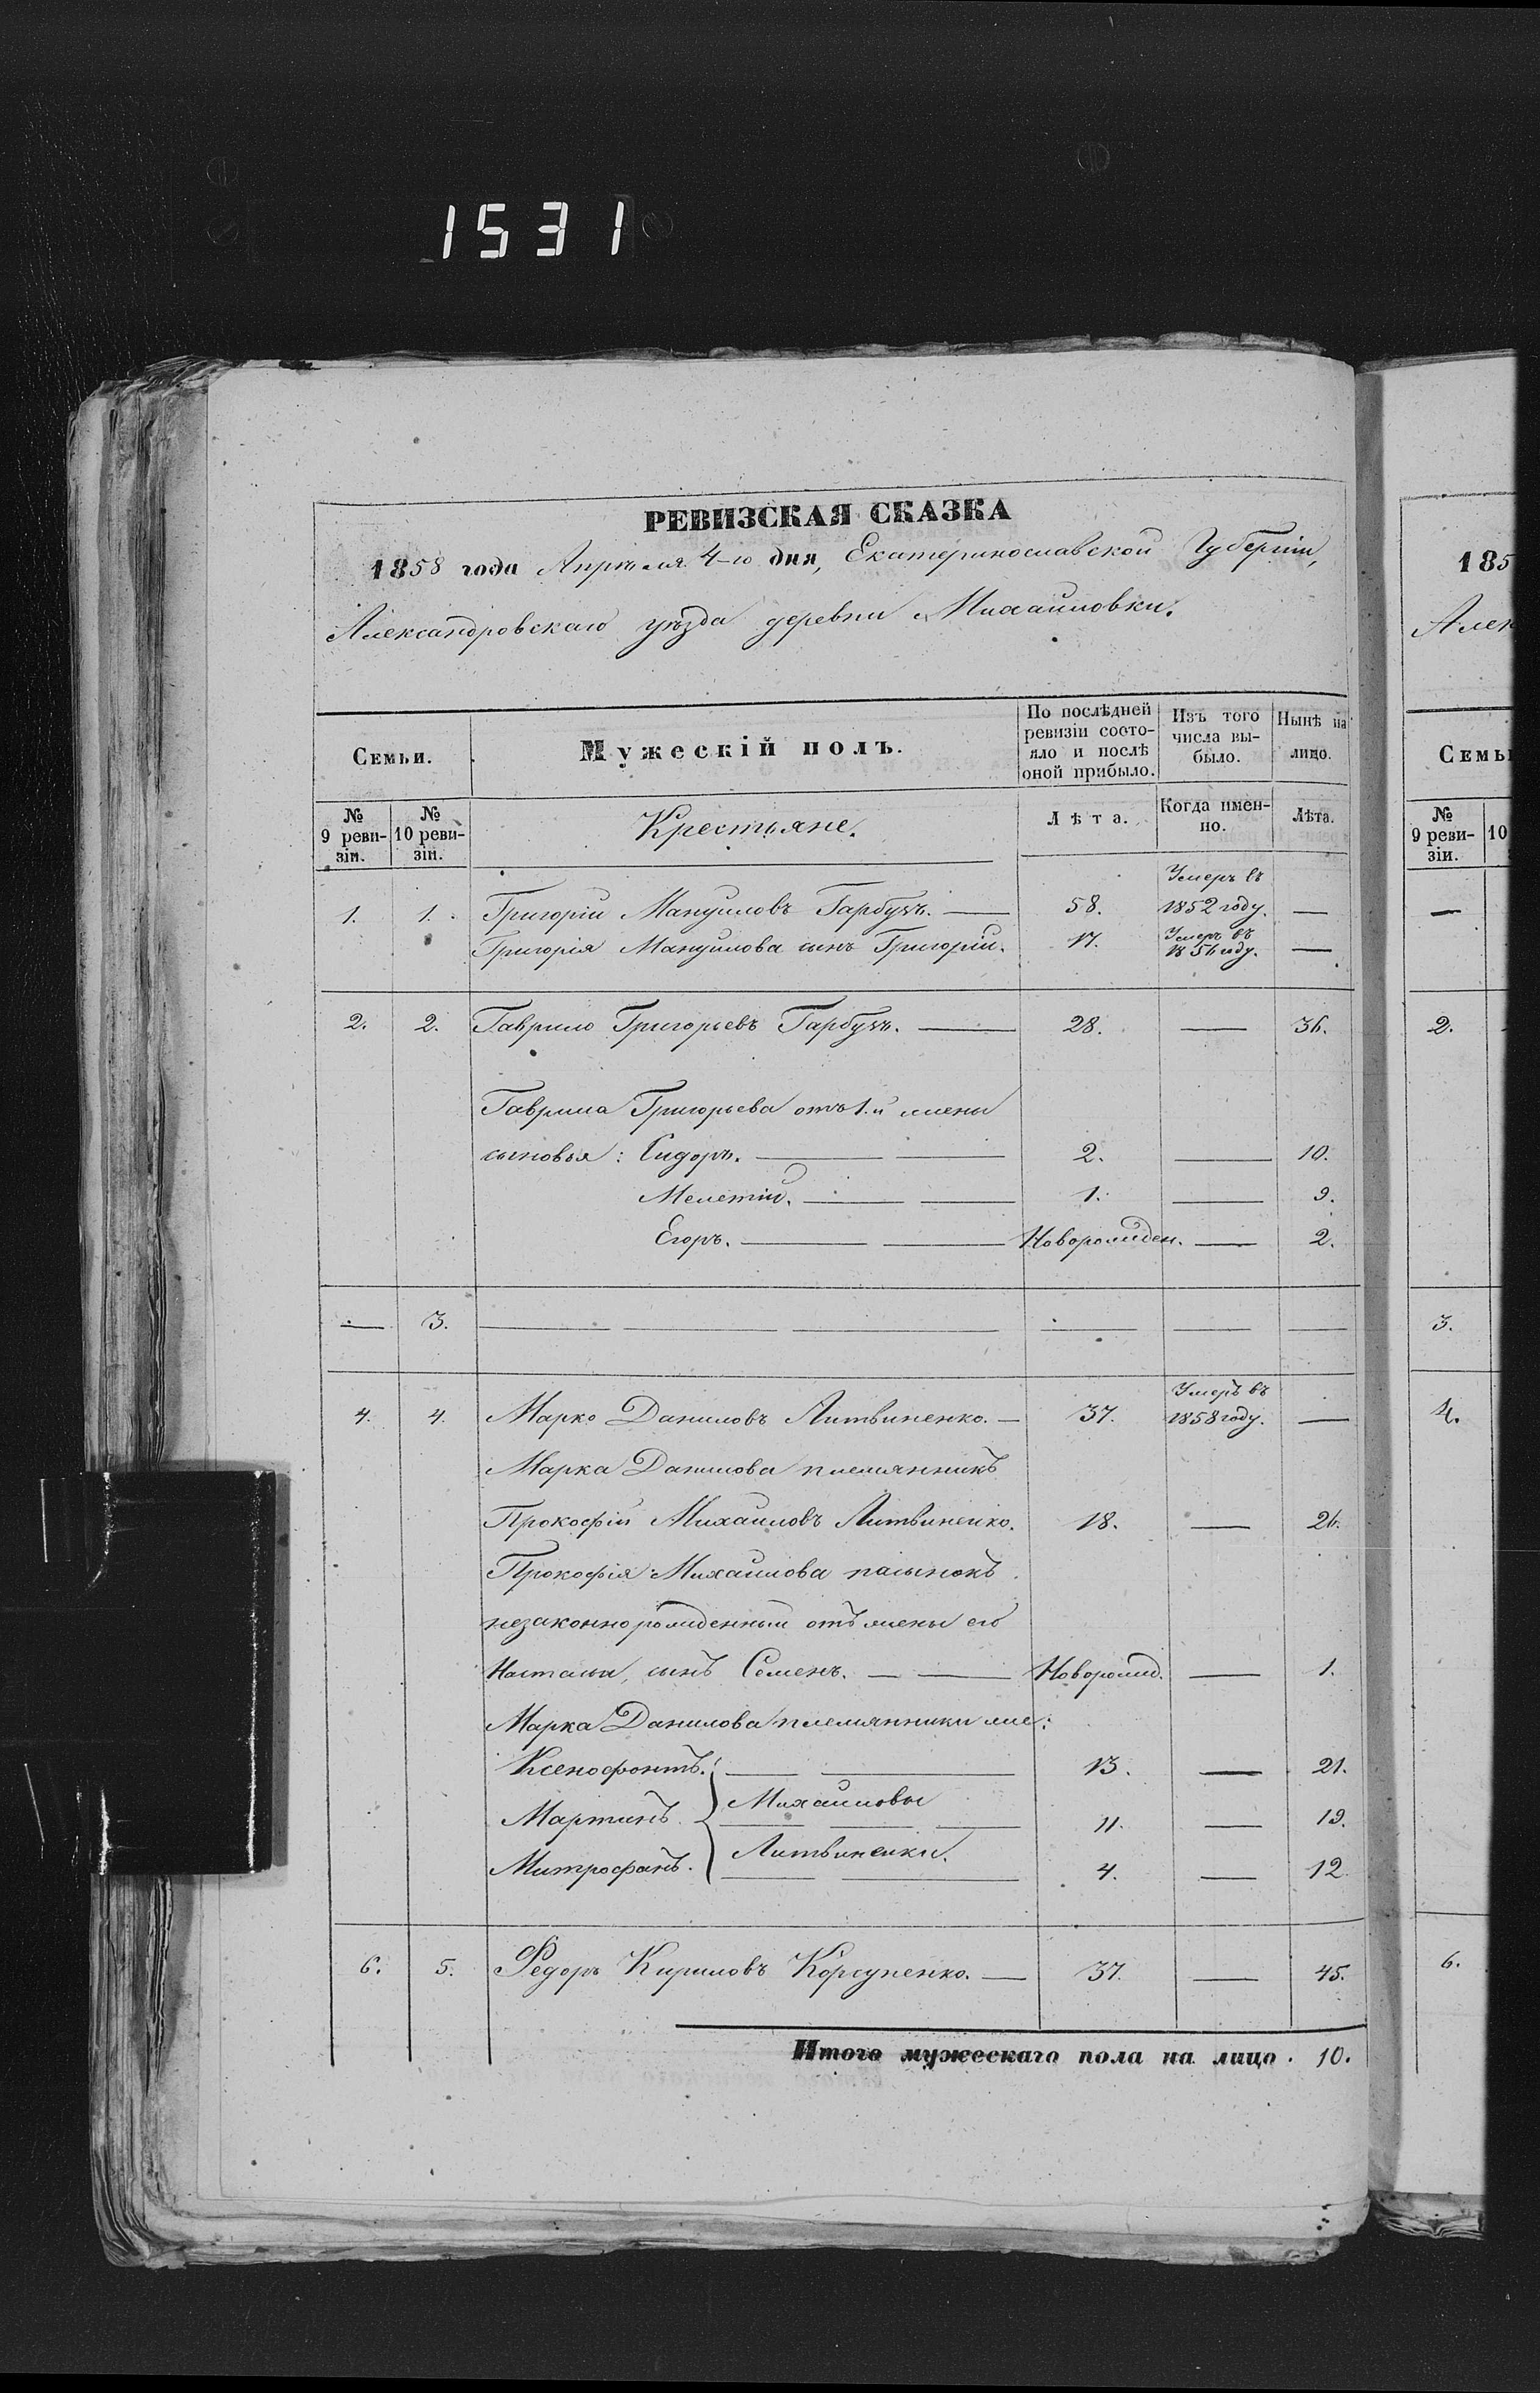 1531
РЕВИЗСКАЯ СКАЗКА
1858 года Апрѣля 4-го дня, Екатеринославской Губерніи,
Александровскаго уѣзда деревни Михайловки.
Семьи.
Мужескій полъ.
По послѣдней ревизіи состояло и послѣ оной прибыло.
Изъ того числа выбыло.
Нынѣ на лицо.
№ 9 ревизіи.
№ 10 ревизіи.
Крестьяне.
Лѣта.
Когда именно.
Лѣта.
1. 1. Григорій Мануиловъ Гарбузъ. — 58. Умеръ въ 1852 году. —
Григорія Мануилова сынъ Григорій. 17. Умеръ въ 1856 году. —
2. 2. Гаврило Григорьевъ Гарбузъ. — 28. — 36.
Гаврила Григорьева отъ 1-й жены
сыновья: Сидоръ. — — 2. — 10.
Мелетій. — — 1. — 9.
Егоръ. — — Новорожден. — 2.
— 3. — — — — — —
4. 4. Марко Даниловъ Литвиненко. — 37. Умеръ въ 1858 году. —
Марка Данилова племянникъ
Прокофій Михайловъ Литвиненко. 18. — 26.
Прокофія Михайлова пасынокъ
незаконнорожденный отъ жены его
Настасьи, сынъ Семенъ. — — Новорожд. — 1.
Марка Данилова племянники же:
Ксенофонтъ. — — 13. — 21.
Мартинъ. Михайловы — — — 11. — 19.
Митрофанъ. Литвиненки. — — 4. — 12
6. 5. Федоръ Кириловъ Корсуненко. — 37. — 45.
Итого мужескаго пола на лицо . 10.
185
Алек
Семь
№ 9 ревизіи.
10
—
2.
3.
4.
6.